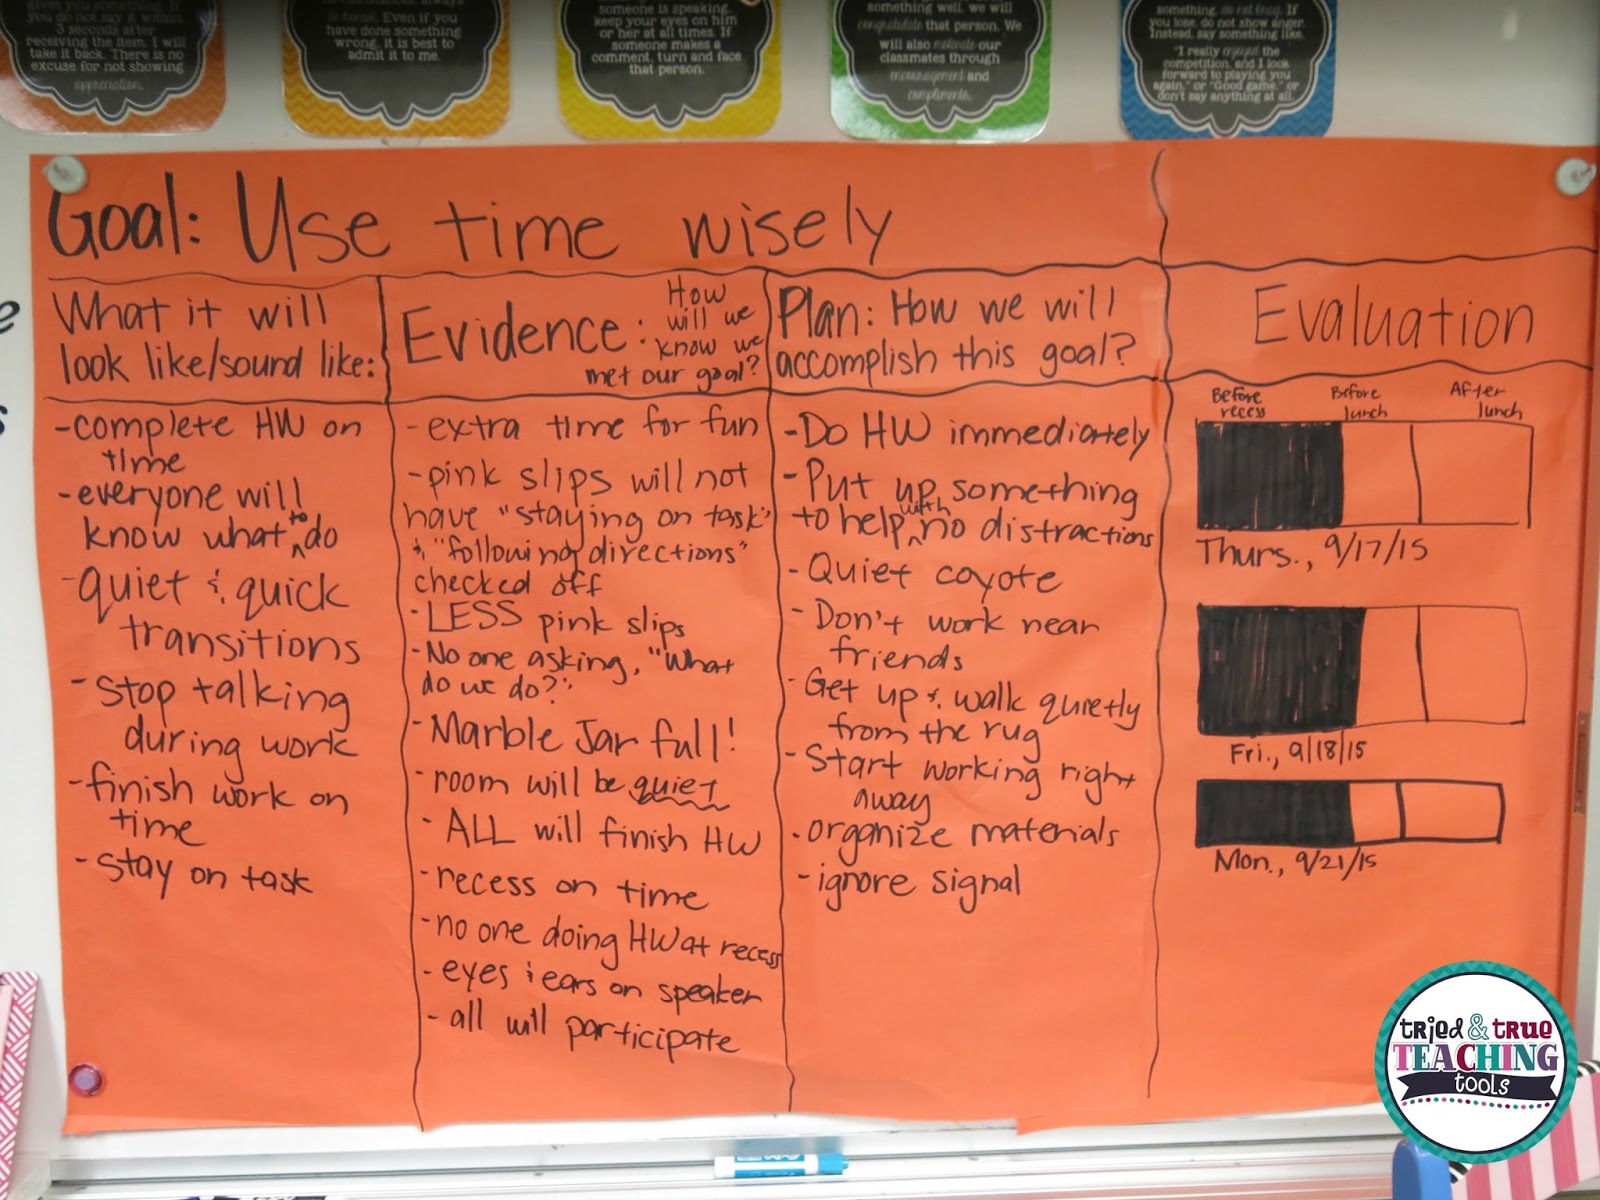 gives you something. If
you do not say it within
3 seconds after
receiving the item, I will
take it back. There is no
excuse for not showing
appreciation.
to be honest. Even if you
have done something
wrong, it is best to
admit it to me.
someone is speaking,
keep your eyes on him
or her at all times. If
someone makes a
comment, turn and face
that person.
something well, we will
congratulate that person. We
will also motivate our
classmates through
encouragement and
compliments.
something, do not brag. If
you lose, do not show anger.
Instead, say something like,
"I really enjoyed the
competition, and I look
forward to playing you
again," or "Good game," or
don't say anything at all.
Goal: Use time wisely
What it will
look like/sound like:
-complete HW on
time
-everyone will
know what to do
-quiet & quick
transitions
-stop talking
during work
-finish work on
time
-stay on task
Evidence: How
will we
know we
met our goal?
-extra time for fun
-pink slips will not
have "staying on task"
& "following directions"
checked off
-LESS pink slips
-No one asking, "What
do we do?"
-Marble Jar full!
-room will be quiet
-ALL will finish HW
-recess on time
-no one doing HW at recess
-eyes & ears on speaker
-all will participate
Plan: How we will
accomplish this goal?
-Do HW immediately
-Put up something
to help with no distractions
-Quiet coyote
-Don't work near
friends
-Get up & walk quietly
from the rug
-Start working right
away
-organize materials
-ignore signal
Evaluation
Before recess Before lunch After lunch
Thurs., 9/17/15
Fri., 9/18/15
Mon., 9/21/15
tried & true
TEACHING
tools